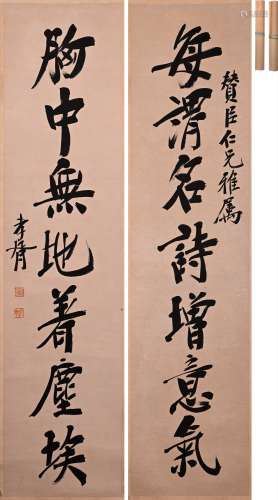 每謂名詩增意氣
贊臣仁兄雅屬
胸中無地著塵埃
孝胥